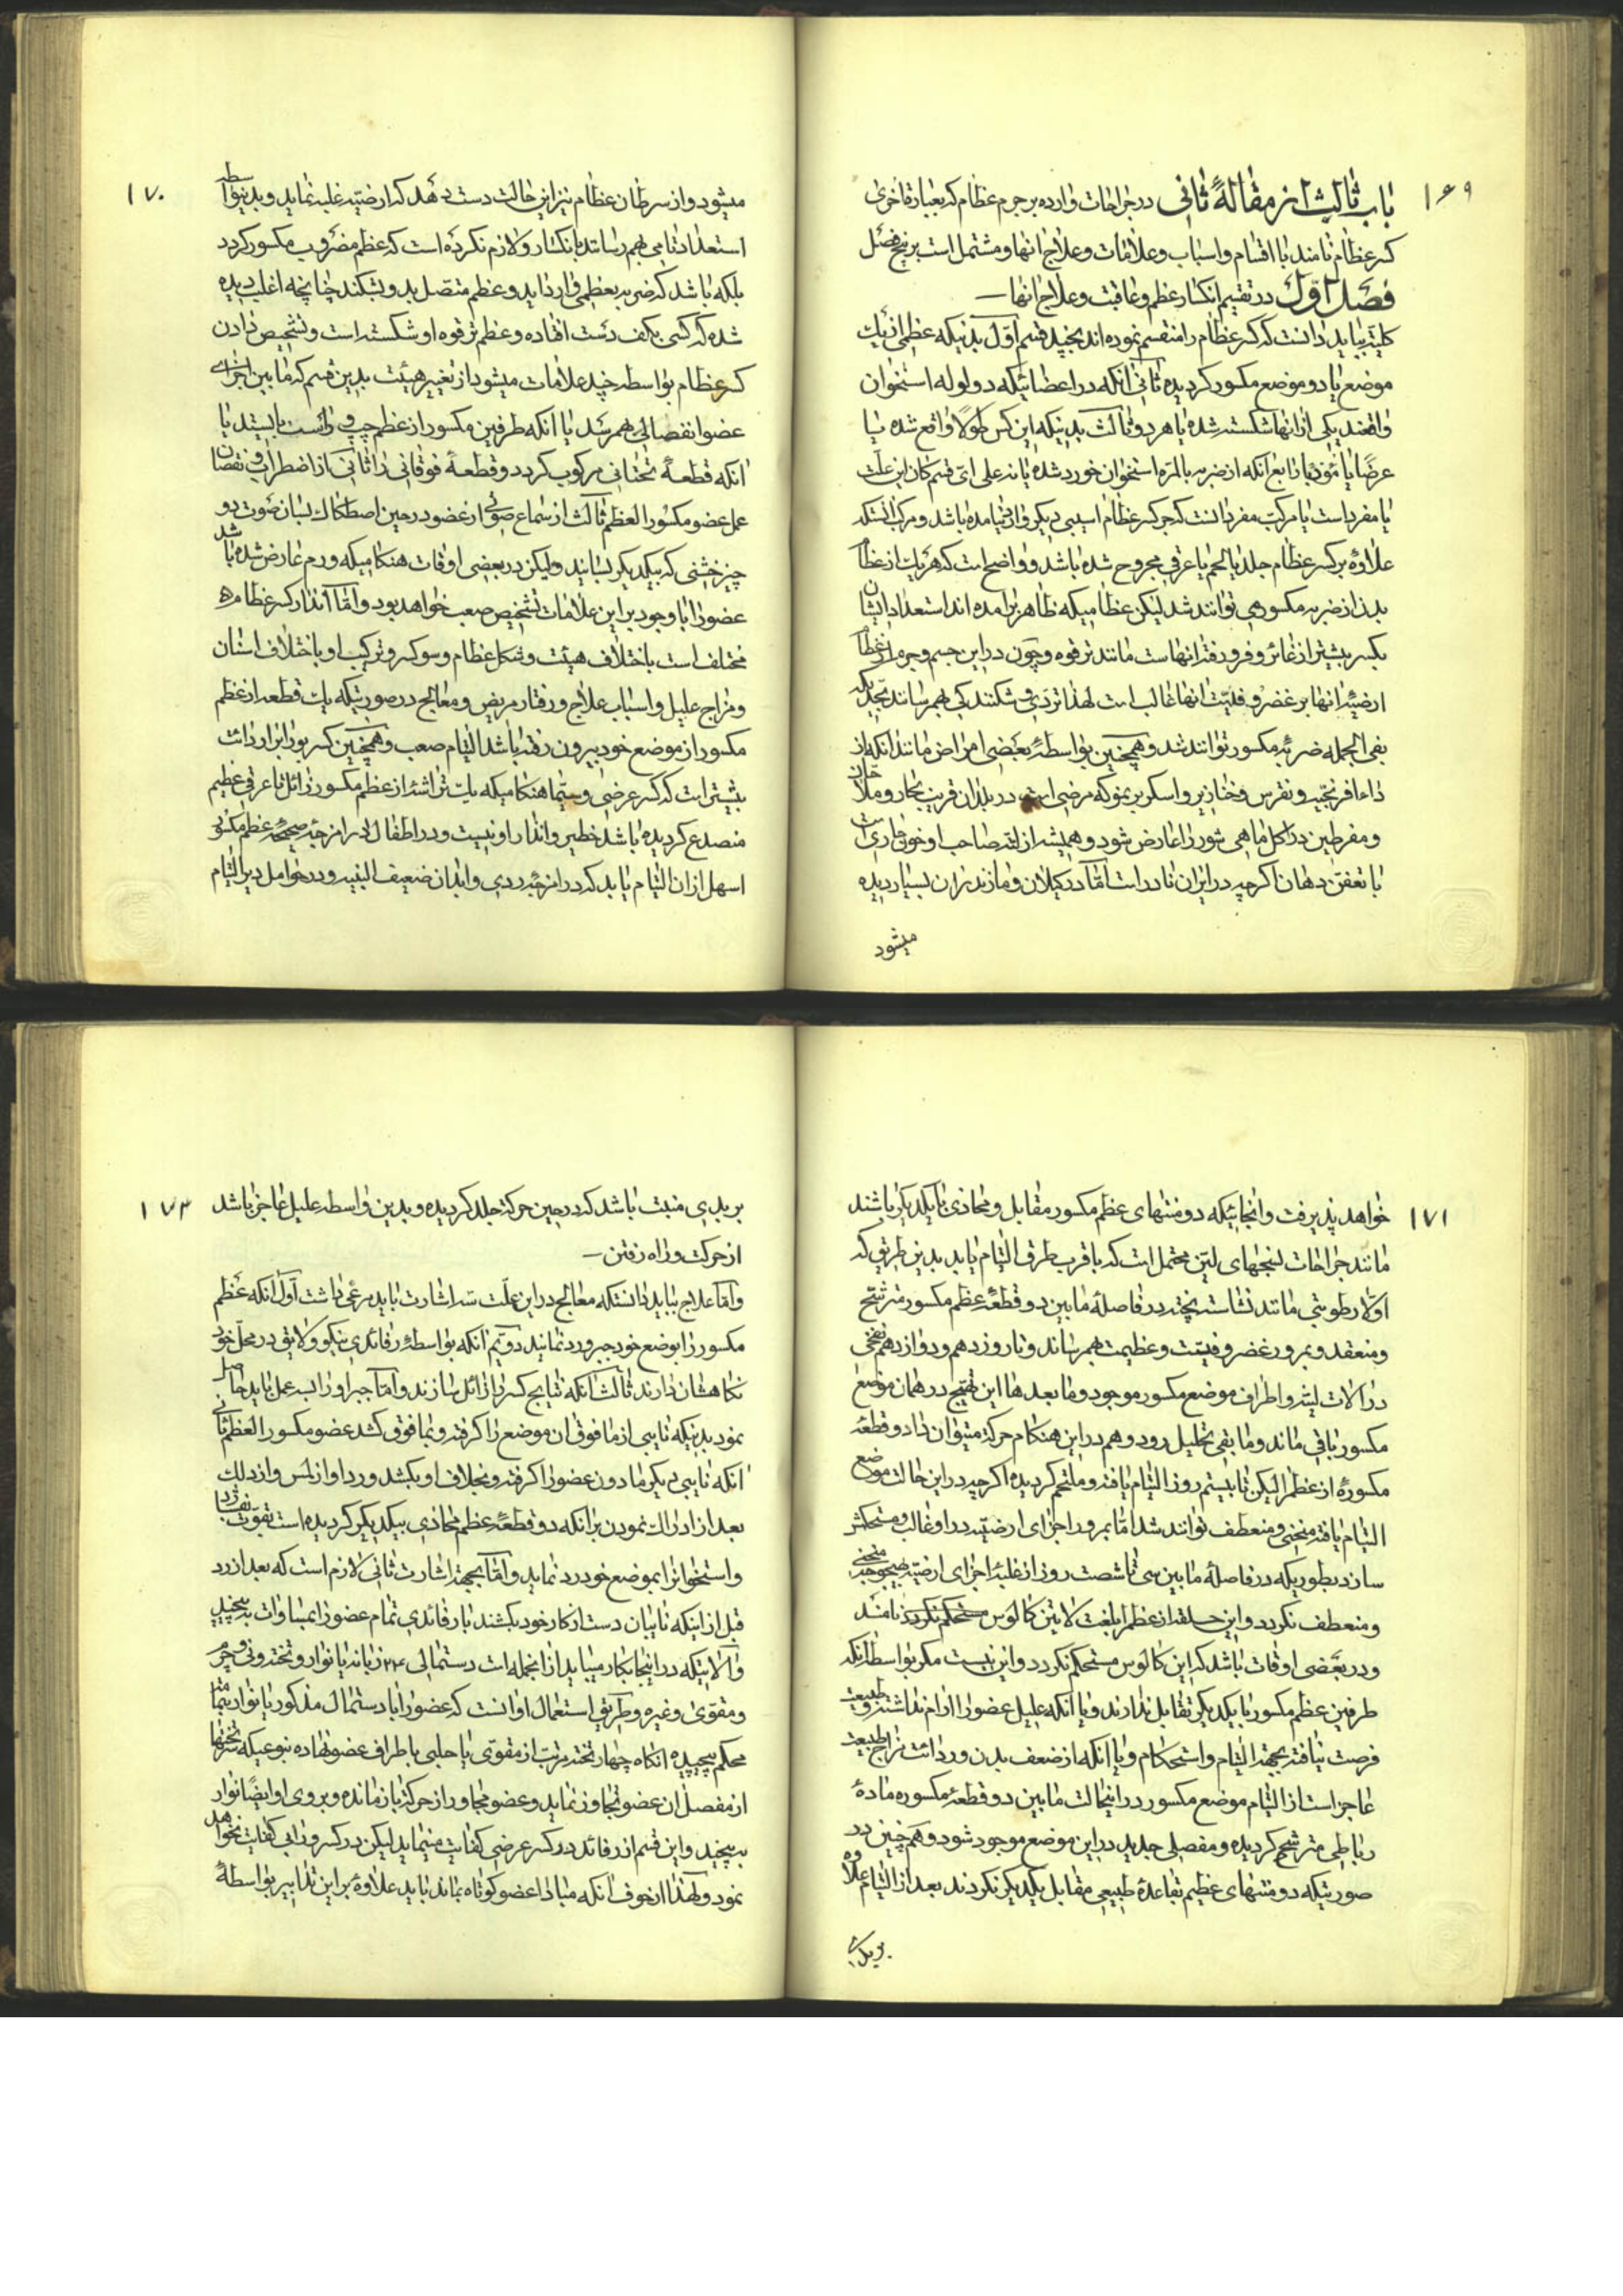 ۱۶۹
باب ثالث از مقالهٔ ثانی در جراحات وارده بر جرم عظام که بعبارة اخری
کسر عظام نامند با اقسام و اسباب و علامات و علاج انها و مشتمل است بر پنج فصل
فصل اول در تقسیم انکسار عظم و عاقبت و علاج انها
کلیّه بباید دانست که کسر عظام را منقسم نموده اند بچند قسم اوّل بدنیکه عظمی از یک
موضع یا دو موضع مکسور کردیده ثانی انکه در اعضائیکه دو لوله استخوان
واقعند یکی از انها شکسته شده یا هر دو ثالث بدینکه این کسر طولاً واقع شده یا
عرضًا یا مؤربًا رابع انکه از ضربه بالمرّه استخوان خورد شده یا نه علی ایّ قسم کان این علّت
یا مفرد است یا مرکب مفرد انست که جز کسر عظام اسیبی دیکر وارد نیامده باشد و مرکب انستکه
علاوهٔ بر کسر عظام جلد یا لحم یا عرقی مجروح شده باشد و واضح است که هر یک از عظام
بدن از ضربه مکسور می توانند شد لیکن عظامیکه ظاهر برامده اند استعداد ایشان
بکسر بیشتر از غائر و فرو رفته انهاست مانند ترقوه و چون در این جسم وجرم از عظام
ارضیّه انها بر غضروفیّت انها غالب است لهذا تردی و شکنندکی بهم رسانند بحدیکه
بفی الجمله ضربهٔ مکسور توانند شد و همچنین بواسطهٔ بعضی امراض مانند انکه از
داء افرنجیّه و نقرس و خنازیر و اسکوربیوکه مرضی است در بلدان قریب بحار و ملاحان
و مفرطین در اکل ماهی شور را عارض شود و همیشه از لثه صاحب او خون جاری است
با تعفن دهان اکرچه در ایران نادر است امّا در کیلان و مازندران بسیار دیده
میشود
۱۷۰
میشود و از سرطان عظام نیز این حالت دست دهد که ارضیّه غلبه نماید و بدینواسطه
استعداد تامی بهم رسانند بانکسار و لازم نکرده است که عظم مضروب مکسور کردد
بلکه باشد که ضربه بعظمی وارد اید و عظم متصل بد و بشکند چنانچه اغلب دیده
شده که کسی بکف دست افتاده و عظم ترقوه او شکسته است و تشخیص دادن
کسر عظام بواسطه چند علامات میشود از تغییر هیئت بدین قسم که مابین اجزای
عضو انفصالی بهم رسد یا انکه طرفین مکسور از عظم چپ و راست بایستد یا
انکه قطعهٔ تحتانی مرکوب کردد و قطعهٔ فوقانی راثانی از اضطراب و نقصان
عمل عضو مکسور العظم ثالث از سماع صوتی از عضو در حین اصطکاک بسان صوت دو
چیز خشنی که بیکدیکر بسایند ولیکن در بعضی اوقات هنکامیکه ورم عارض شده باشد
عضو را با وجود بر این علامات تشخیص صعب خواهد بود و امّا انذار کسر عظام
مختلف است باختلاف هیئت و شکل عظام و سو کسر و ترکیب او باختلاف اسنان
و مزاج علیل و اسباب علاج و رفتار مریض و معالج در صورتیکه یک قطعه از عظم
مکسور از موضع خود بیرون رفته باشد التیام صعب و همچنین کسر مورب را ردائت
بیشتر است که کسر عرضی و سیّما هنکامیکه یک تراشهٔ از عظم مکسور زائل تا عرقی عظیم
منصدع کردیده باشد خطیر و انذار او نیست و در اطفال در امزجهٔ صحیحه عظم مکسور
اسهل از ان التیام یابد که در امزجهٔ ردی و ابدان ضعیف البنیه و در حوامل دیر التیام
۱۷۱
خواهد پذیرفت و انجائیکه دو منتهای عظم مکسور مقابل و محاذی با یکدیکر باشند
مانند جراحات نسجهای لیّن محتمل است که باقرب طرق التیام یابد بدین طریق که
اوّلا رطوبتی مانند نشاسته پخته در فاصلهٔ مابین دو قطعهٔ عظم مکسور مترشح
و منعقد و بمرور غضروفیّت و عظمیت بهم رساند و تا روز دهم و دوازدهم نضجی
در الات لیّنه و اطراف موضع مکسور موجود و ما بعدها این تهیج در همان موضع
مکسور باقی ماند و مابقی بتحلیل رود و هم در این هنکام حرکة میتوان داد و قطعهٔ
مکسورهٔ از عظم را لیکن تا بیستم روز التیام یافته و ملتحم کردیده اکرچه در این حالت موضع
التیام یافته منحنی و منعطف توانند شد امّا بمرور اجزای ارضیّه در او غالب و مستحکم
سازد بطوریکه در فاصلهٔ مابین سی تا شصت روز از غلبهٔ اجزای ارضیّه بهیچوجه منحنی
و منعطف نکردد و این حلقه از عظم را بلغت لاتین کالوس نامند
و در بعضی اوقات باشد که این کالوس مستحکم نکردد و این نیست مکر بواسطهٔ انکه
طرفین عظم مکسور با یکدیکر تقابل ندارند و یا انکه علیل عضو را ارام نداشته و طبیعت
فرصت نیافته بجهة التیام و استحکام و یا انکه از ضعف بدن و ردائت مزاج طبیعت
عاجز است از التیام موضع مکسور در اینحالت مابین دو قطعهٔ مکسوره مادهٔ
رباطی مترشح کردیده و مفصلی جدید در این موضع موجود شود و همچنین در
صورتیکه دو منتهای عظیم بقاعدهٔ طبیعی مقابل یکدیکر نکردند بعد از التیام علاوه
بریدی
۱۷۲
بریدی مثبت باشد که در حین حرکة جلد کردیده و بدین واسطه علیل عاجز باشد
از حرکت و راه رفتن
و امّا علاج بباید دانستکه معالج در این علّت سه اشارت باید مرعی داشت اوّل انکه عظم
مکسور را بوضع خود جبر و رد نمایند دوّیم انکه بواسطهٔ رفائدی نیکو و لایق در محل خود
نکاهشان دارند ثالث انکه نتایج کسر را زائل سازند و امّا جبر او را بسه عمل باید حاصل
نمود بدینکه نایبی از ما فوق ان موضع را کرفته و بما فوق کشد عضو مکسور العظم ثانی
انکه نایبی دیکر مادون عضو را کرفته و بخلاف او بکشد و رد او از لمس و از دلک
بعد از ادراک نمودن بر انکه دو قطعهٔ عظم محاذی بیکدیکر کردیده است بقوّت
و استخوانرا بموضع خود رد نماید و امّا بجهة اشارت ثانی لازم است که بعد از رد
قبل از اینکه نایبان دست از کار خود بکشند با رفائدی تمام عضو را بمساوات بپیچید
و الاتیکه در اینجا بکار میباید از انجمله است دستمالی ۲۴ زبانه یا نوار و تخته و نی و چرم
و مقوی و غیره و طریق استعمال او انست که عضو را با دستمال مذکور یا نوار بتمامه
محکم پیچیده انکاه چهار تخته مرتب از مقوّی یا حلبی باطراف عضو نهاده بنوعیکه سر تختها
از مفصل ان عضو تجاوز نماید و عضو مجاور از حرکة باز مانده و بروی او ایضًا نوار
بپیچید و این قسم از رفائد در کسر عرضی کفایت مینماید لیکن در کسر ورابی کفایت نخواهد
نمود و لهذا از خوف انکه مبادا عضو کوتاه بماند باید علاوهٔ بر این تدابیر بواسطهٔ